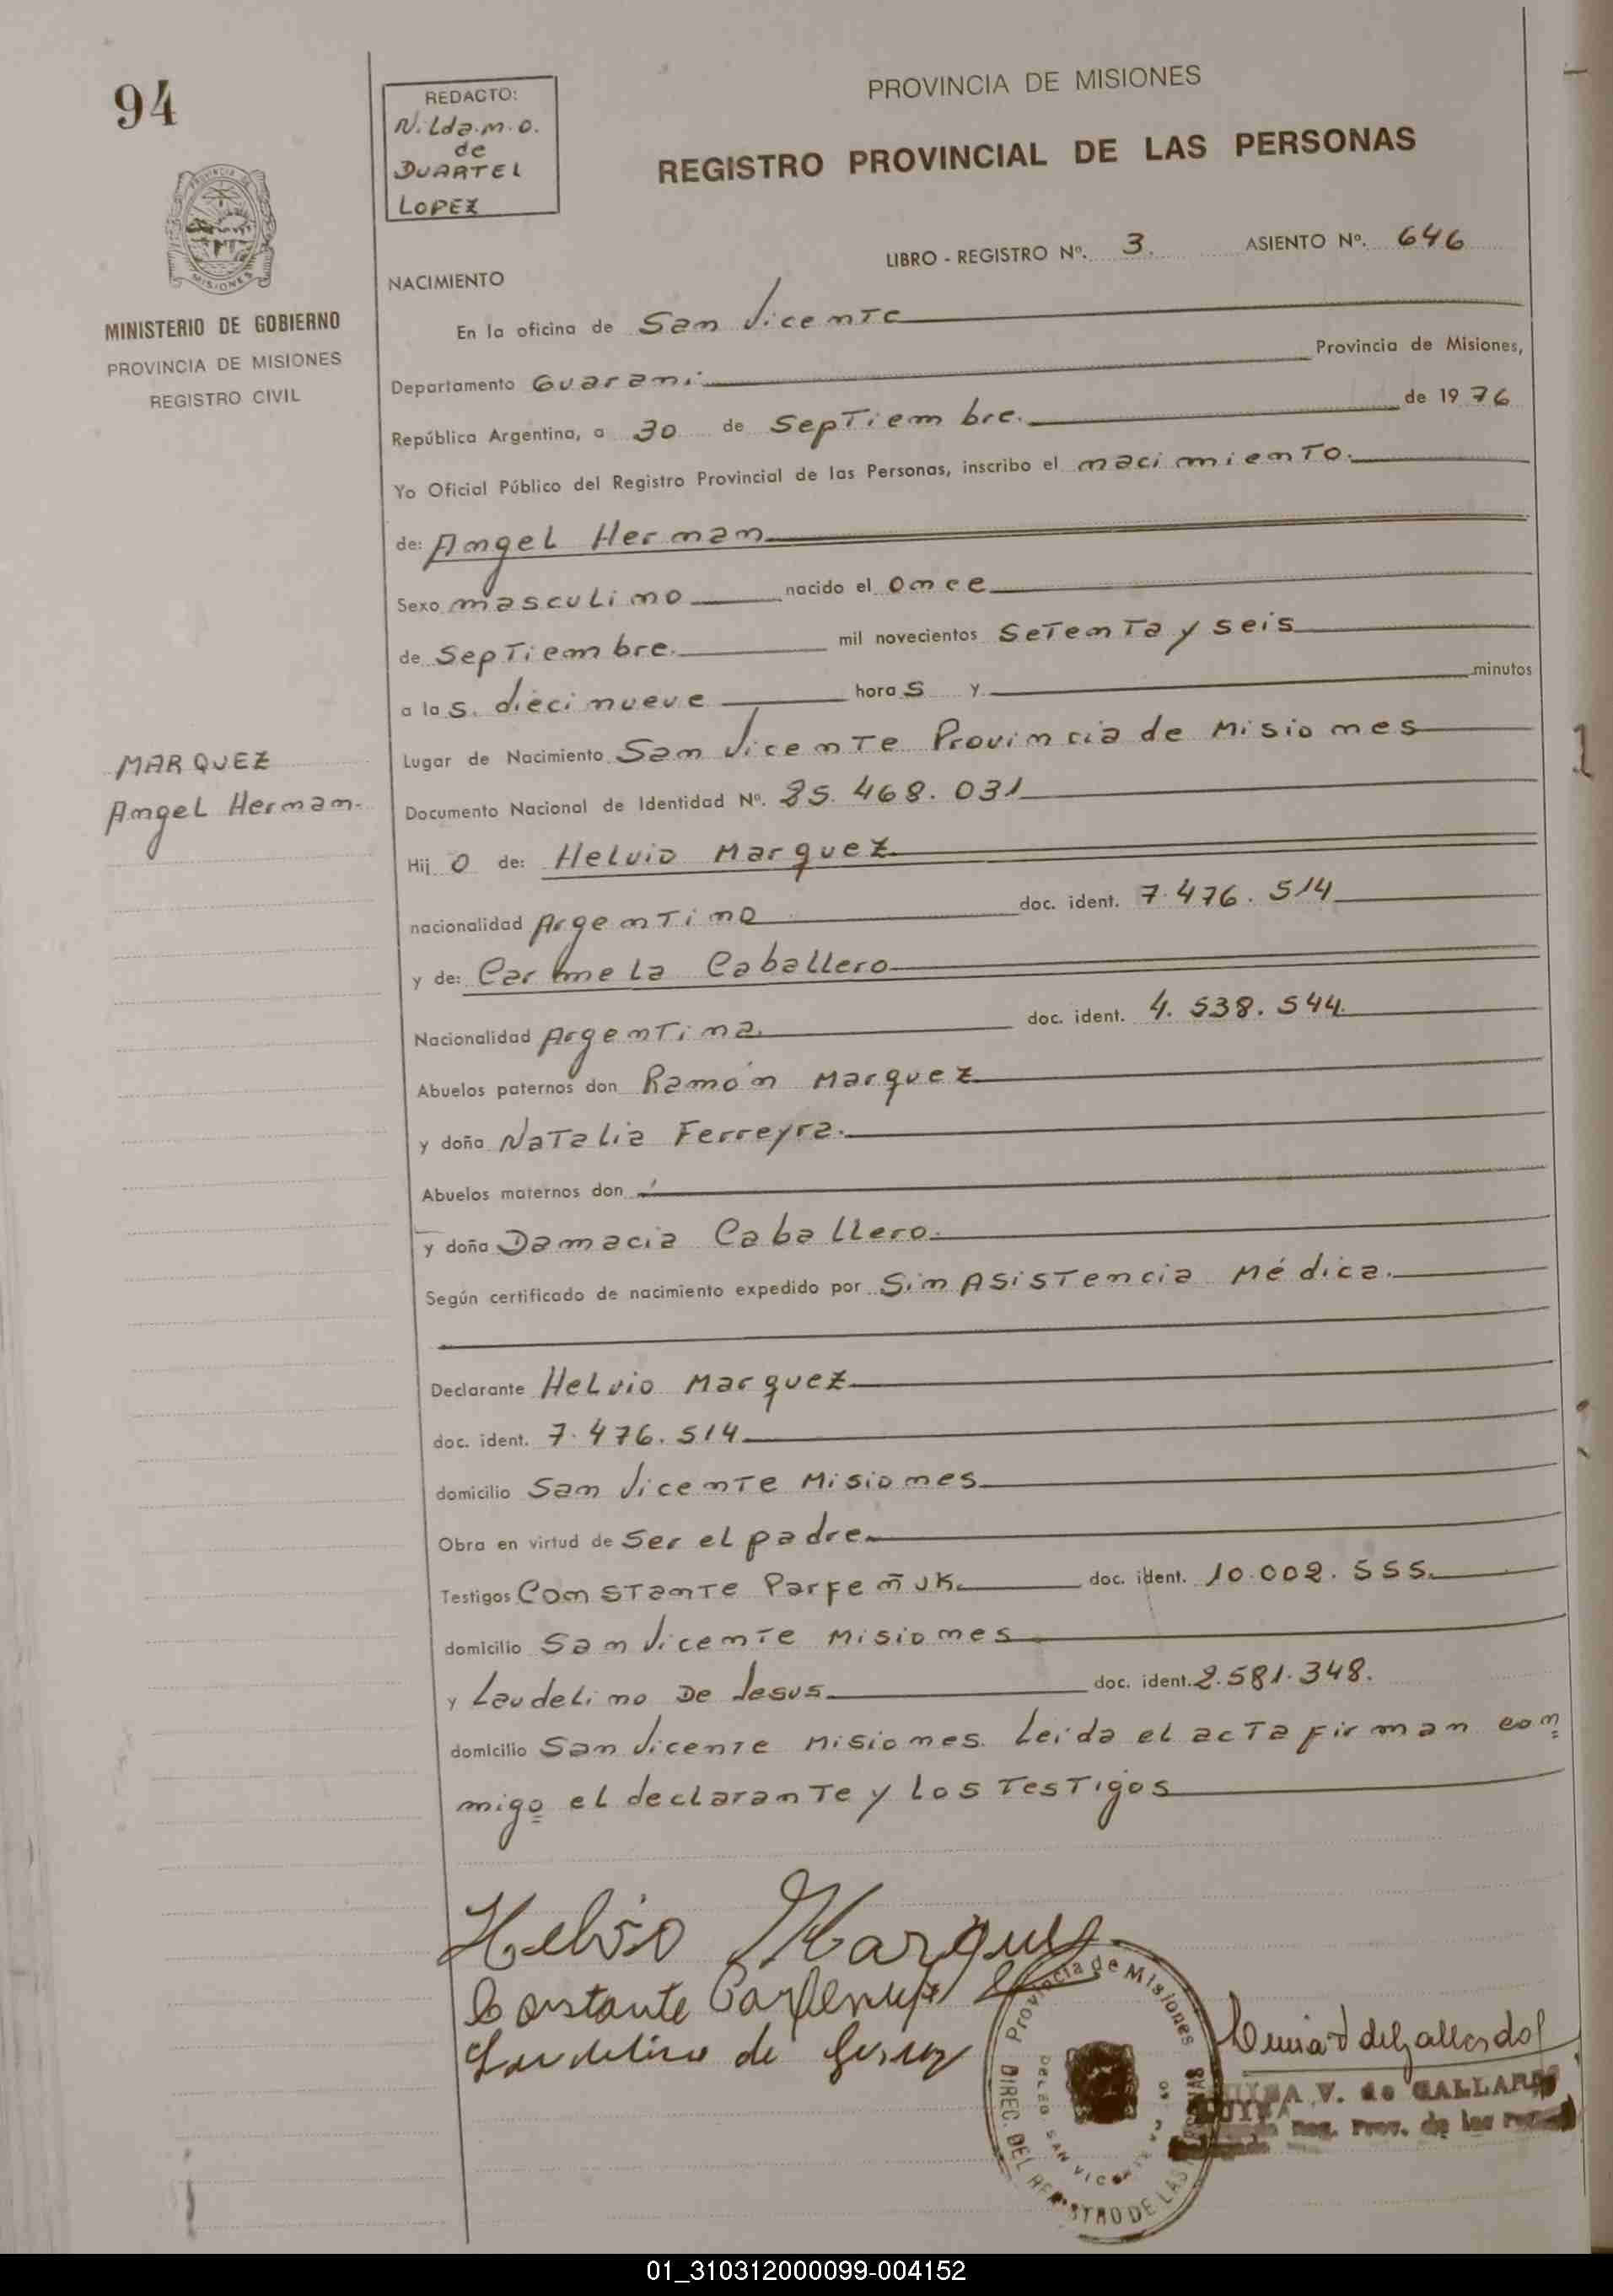 94
REDACTO:
Nilda.m.o.
de
DUARTEL
LOPEZ
PROVINCIA DE MISIONES
REGISTRO PROVINCIAL DE LAS PERSONAS
MINISTERIO DE GOBIERNO
PROVINCIA DE MISIONES
REGISTRO CIVIL
LIBRO - REGISTRO Nº. 3. ASIENTO Nº. 646
NACIMIENTO
En la oficina de San Vicente
Departamento Guarani Provincia de Misiones,
República Argentina, a 30 de Septiembre. de 1976
Yo Oficial Público del Registro Provincial de las Personas, inscribo el nacimiento.
de: Angel Hernan
Sexo masculino nacido el once
de Septiembre. mil novecientos Setenta y seis
a las. diecinueve horas y minutos
Lugar de Nacimiento San Vicente Provincia de Misiones
MARQUEZ
Angel Hernan.
Documento Nacional de Identidad Nº. 25.468.031
Hijo de: Helvio Marquez
nacionalidad Argentino doc. ident. 7.476.514
y de: Carmela Caballero
Nacionalidad Argentina doc. ident. 4.538.544.
Abuelos paternos don Ramón Marquez
y doña Natalia Ferreyra.
Abuelos maternos don
y doña Damacia Caballero.
Según certificado de nacimiento expedido por Sin Asistencia Médica.
Declarante Helvio Marquez
doc. ident. 7.476.514
domicilio San Vicente Misiones
Obra en virtud de Ser el padre
Testigos Constante Parfeñuk. doc. ident. 10.002.555.
domicilio San Vicente Misiones
y Laudelino De Jesus doc. ident. 2.581.348.
domicilio San Vicente Misiones. Leida el acta firman con=
migo el declarante y los testigos
Helvio Marquez
Constante Parfeñuk
Laudelino de Jesus
Provincia de Misiones
DIREC. DEL REGISTRO DE LAS PERSONAS
SAN VICENTE
V. de GALLARDO
Reg. Prov. de las
01_310312000099-004152